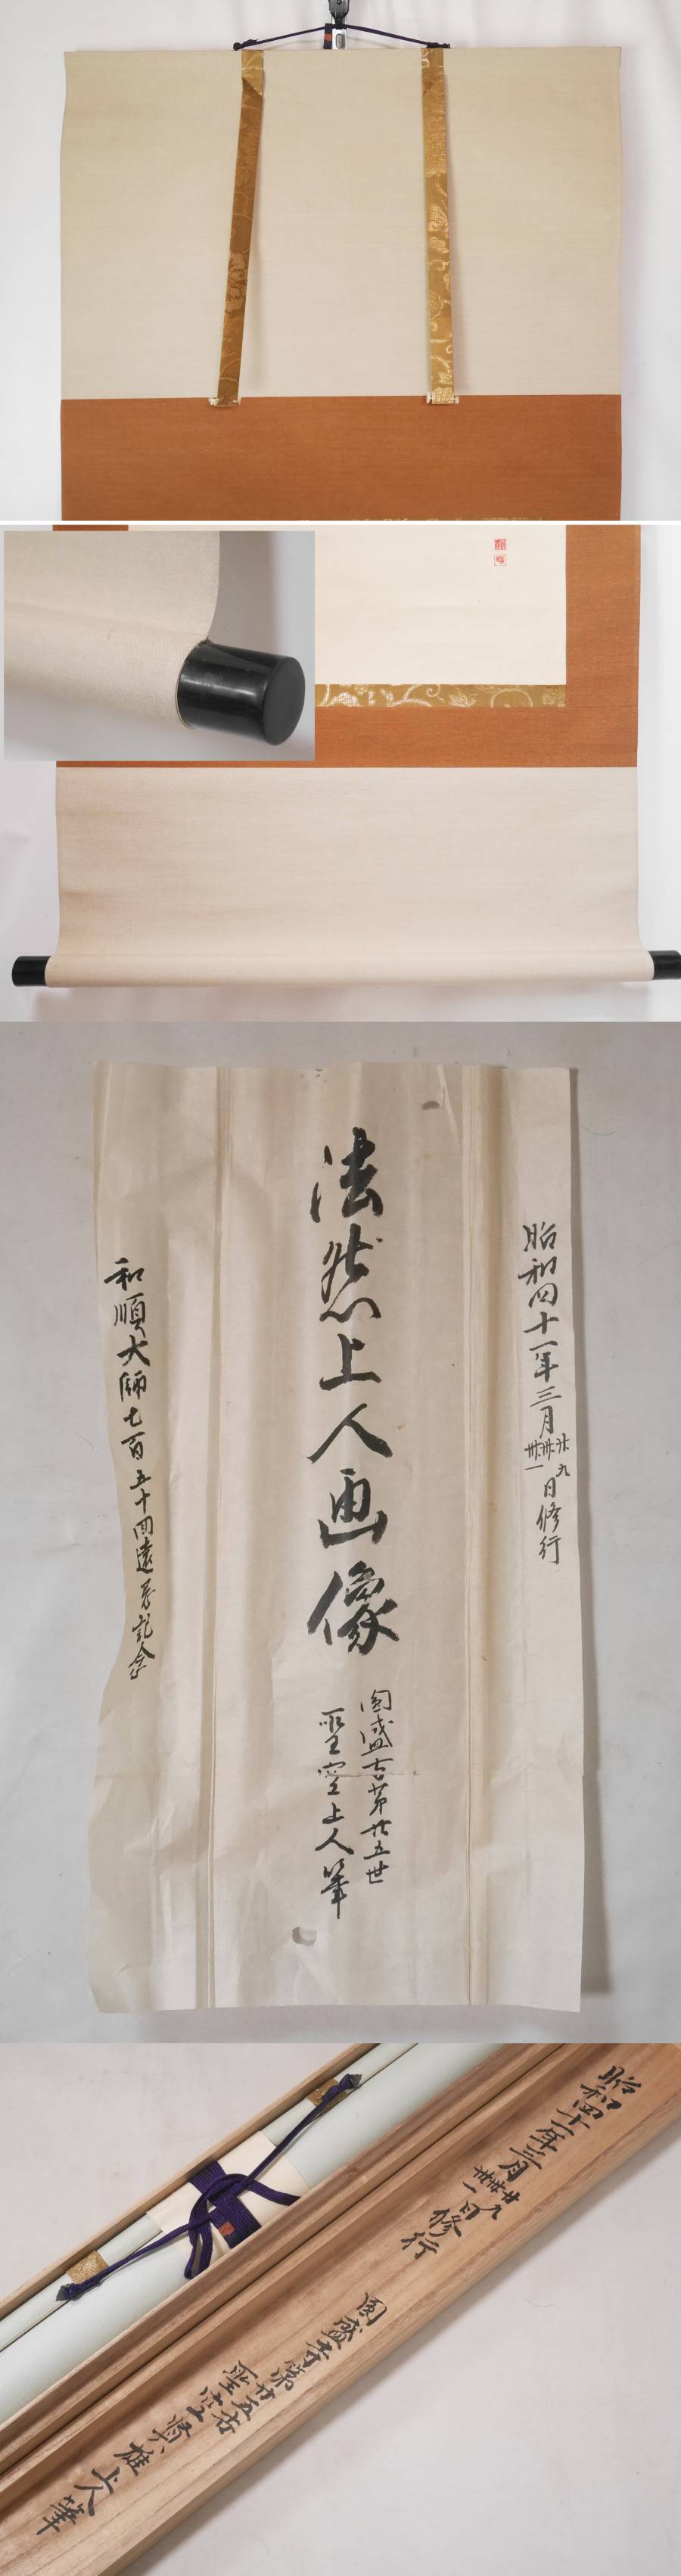 昭和四十一年三月廿九卅卅一日修行
法然上人画像
国盛寺第廿五世
聖空上人筆
和順大師七百五十回遠忌記念
昭和四十一年三月廿九卅卅一日修行
国盛寺第廿五世
聖空賢雄上人筆